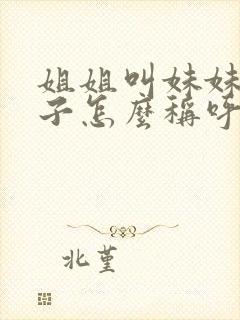 姐姐叫妹妹
子怎麼稱呼
北堇